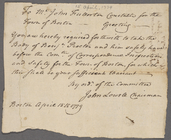 To Mr John Fullerton Constable for the
Town of Boston — Greeting
You are hereby required forthwith to take the
Body of Benj Porter and him safely have
before the Comtee of Correspondence Inspection
and Safety for the Town of Boston, for which
this shall be your sufficient Warrant
By order of the Committee
John Lowell Chairman
Boston April 18th 1779